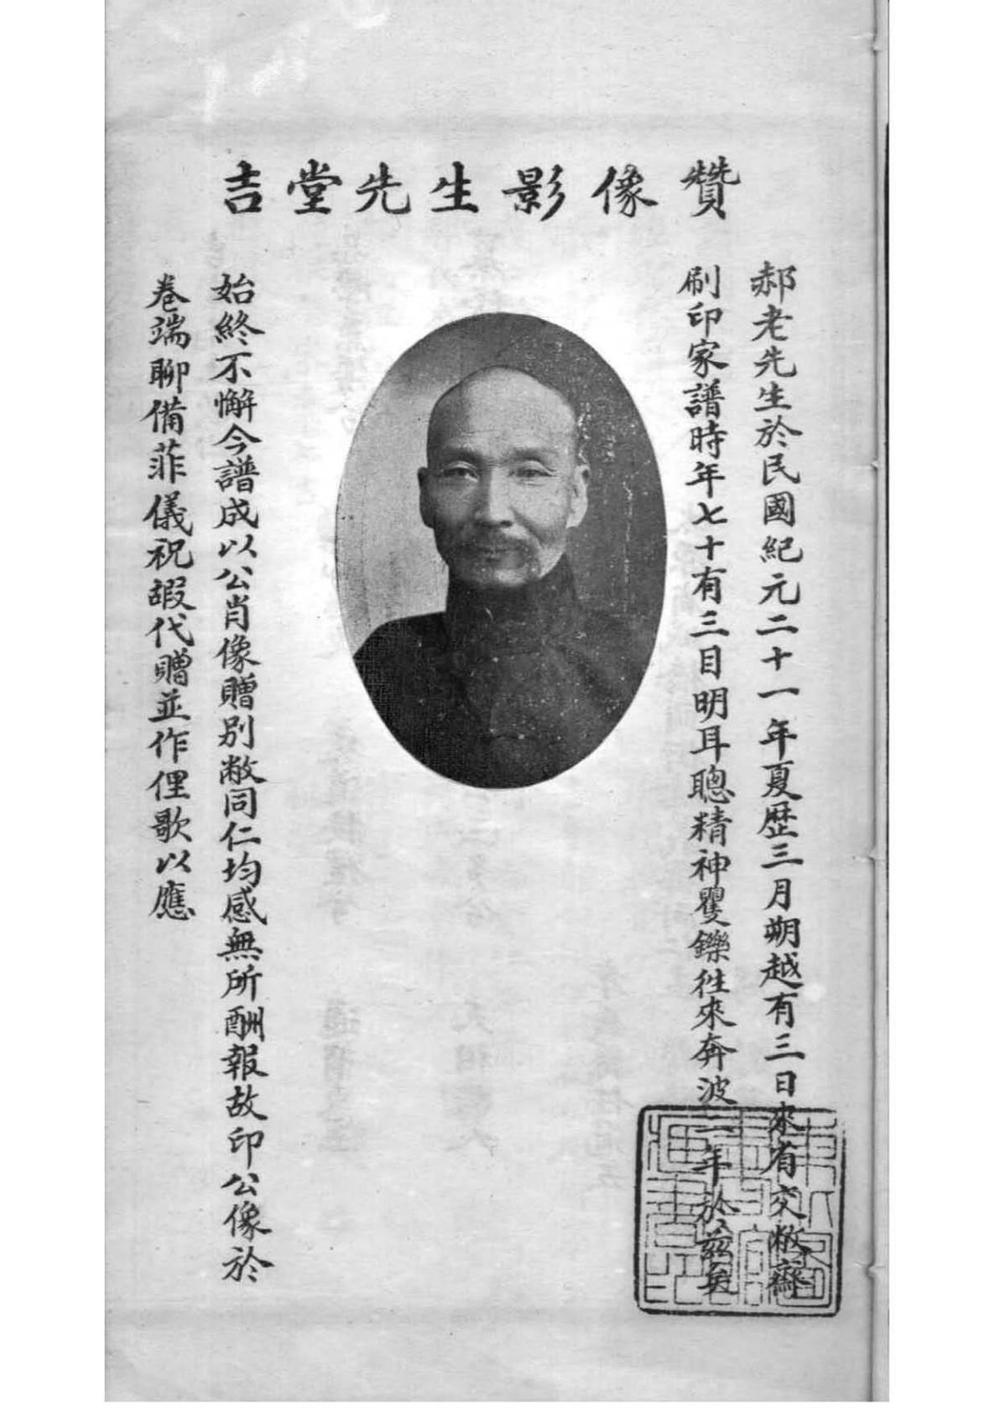 吉堂先生影像贊
郝老先生於民國紀元二十一年夏歷三月朔越有三日來省交敝齋
刷印家譜時年七十有三目明耳聰精神矍鑠往來奔波二年於茲矣
始終不懈今譜成以公肖像贈別敝同仁均感無所酬報故印公像於
卷端聊備菲儀祝嘏代贈並作俚歌以應